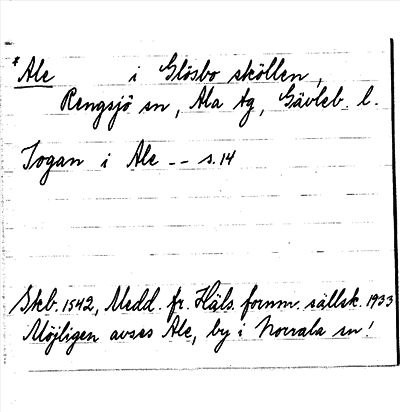 * Ale i Glösbo sköllen,
Rengsjö sn, Ala tg, Gävleb. l.
Jogan i Ale -- s. 14
Skb. 1542, Medd. fr. Häls. fornm. sällsk. 1933
Möjligen avses Ale, by i Norrala sn!